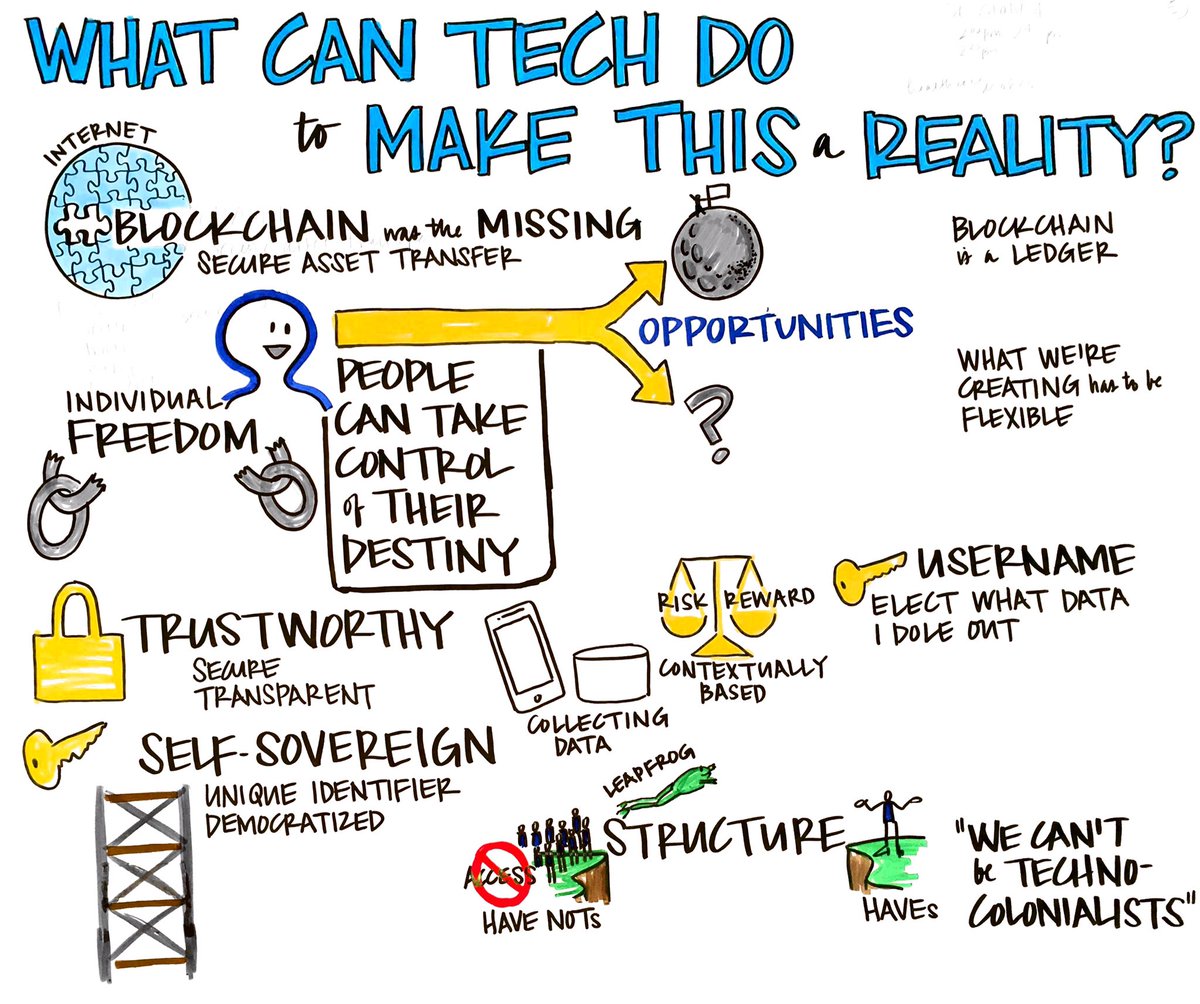 WHAT CAN TECH DO
to MAKE THIS a REALITY?
INTERNET
BLOCKCHAIN was the MISSING
SECURE ASSET TRANSFER
BLOCKCHAIN
is a LEDGER
OPPORTUNITIES
WHAT WE'RE
CREATING has to be
FLEXIBLE
INDIVIDUAL
FREEDOM
PEOPLE
CAN TAKE
CONTROL
of THEIR
DESTINY
TRUSTWORTHY
SECURE
TRANSPARENT
COLLECTING
DATA
RISK REWARD
CONTEXTUALLY
BASED
USERNAME
ELECT WHAT DATA
I DOLE OUT
SELF-SOVEREIGN
UNIQUE IDENTIFIER
DEMOCRATIZED
LEAPFROG
STRUCTURE
ACCESS
HAVE NOTs
HAVEs
"WE CAN'T
be TECHNO-
COLONIALISTS"